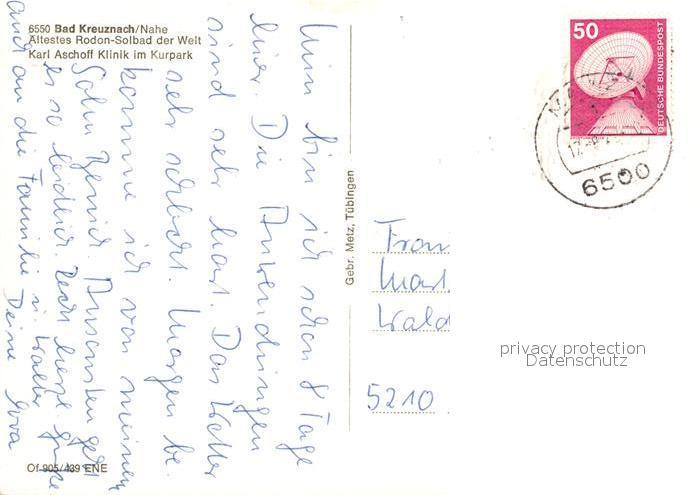 6550 Bad Kreuznach/Nahe
Ältestes Radon-Solbad der Welt
Karl Aschoff Klinik im Kurpark
Nun bin ich schon 8 Tage
hier. Die Anwendungen
sind sehr hart. Das Wetter
sehr schlecht. Morgen be-
komme ich von meinem
Sohn Besuch. Ansonsten geht
es so leidlich. Recht liebe Grüße
auch an die Familie u. Walter
Deine
Of 905/439 ENE
Gebr. Metz, Tübingen
50
DEUTSCHE BUNDESPOST
6500
Frau
Wald
5210
privacy protection
Datenschutz